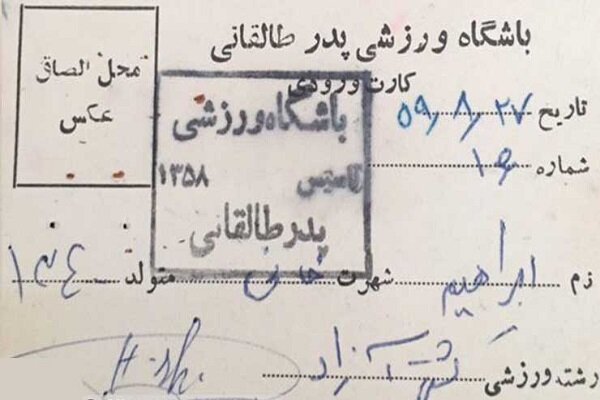 باشگاه ورزشی پدر طالقانی
کارت ورودی
محل الصاق
عکس
باشگاه ورزشی
تاسیس ۱۳۵۸
پدر طالقانی
تاریخ ۵۹/۸/۲۷
شماره
نام ابراهیم شهرت متولد
رشته ورزشی کشتی آزاد
H-sh.